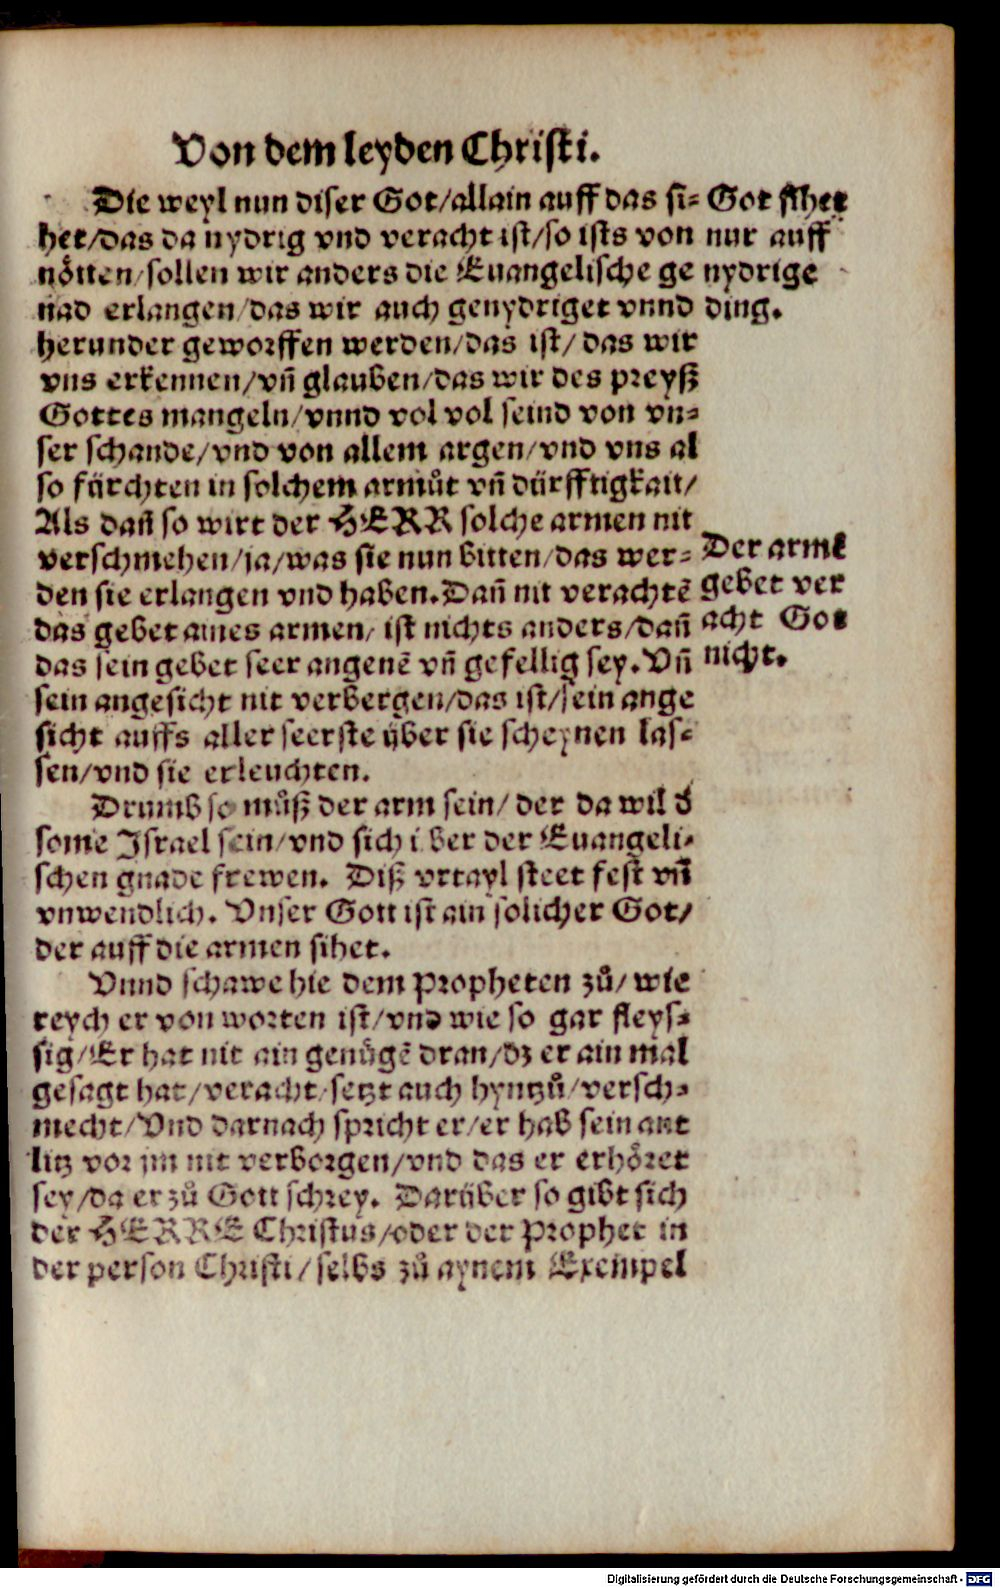 Von dem leyden Christi.
Die weyl nun diser Got/allain auff das si=
het/das da nydrig vnd veracht ist/so ists von
nötten/sollen wir anders die Euangelische ge
nad erlangen/das wir auch genydriget vnnd
herunder geworffen werden/das ist/das wir
vns erkennen/vñ glauben/das wir des preyß
Gottes mangeln/vnnd vol vol seind von vn=
ser schande/vnd von allem argen/vnd vns al
so fürchten in solchem armůt vñ dürfftigkait/
Als dañ so wirt der HERR solche armen nit
verschmehen/ja/was sie nun bitten/das wer=
den sie erlangen vnd haben. Dañ nit verachtē
das gebet aines armen/ist nichts anders/dañ
das sein gebet seer angenē vñ gefellig sey. Vñ
sein angesicht nit verbergen/das ist/sein ange
sicht auffs aller seerste über sie scheynen las=
sen/vnd sie erleuchten.
Drumb so můß der arm sein/der da wil d
some Israel sein/vnd sich über der Euangeli=
schen gnade frewen. Diß vrtayl steet fest vñ
vnwendlich. Vnser Gott ist ain solicher Got/
der auff die armen sihet.
Vnnd schawe hie dem Propheten zů/wie
reych er von worten ist/vnd wie so gar fleys=
sig/Er hat nit ain genůgē dran/dz er ain mal
gesagt hat/veracht/setzt auch hyntzů/versch=
mecht/Vnd darnach spricht er/er hab sein ant
litz vor jm nit verborgen/vnd das er erhöret
sey/da er zů Gott schrey. Darüber so gibt sich
der HERRE Christus/oder der Prophet in
der person Christi/selbs zů aynem Exempel
Got sihet
nur auff
nydrige
ding.
Der armē
gebet ver
acht Got
nicht.
Digitalisierung gefördert durch die Deutsche Forschungsgemeinschaft - DFG